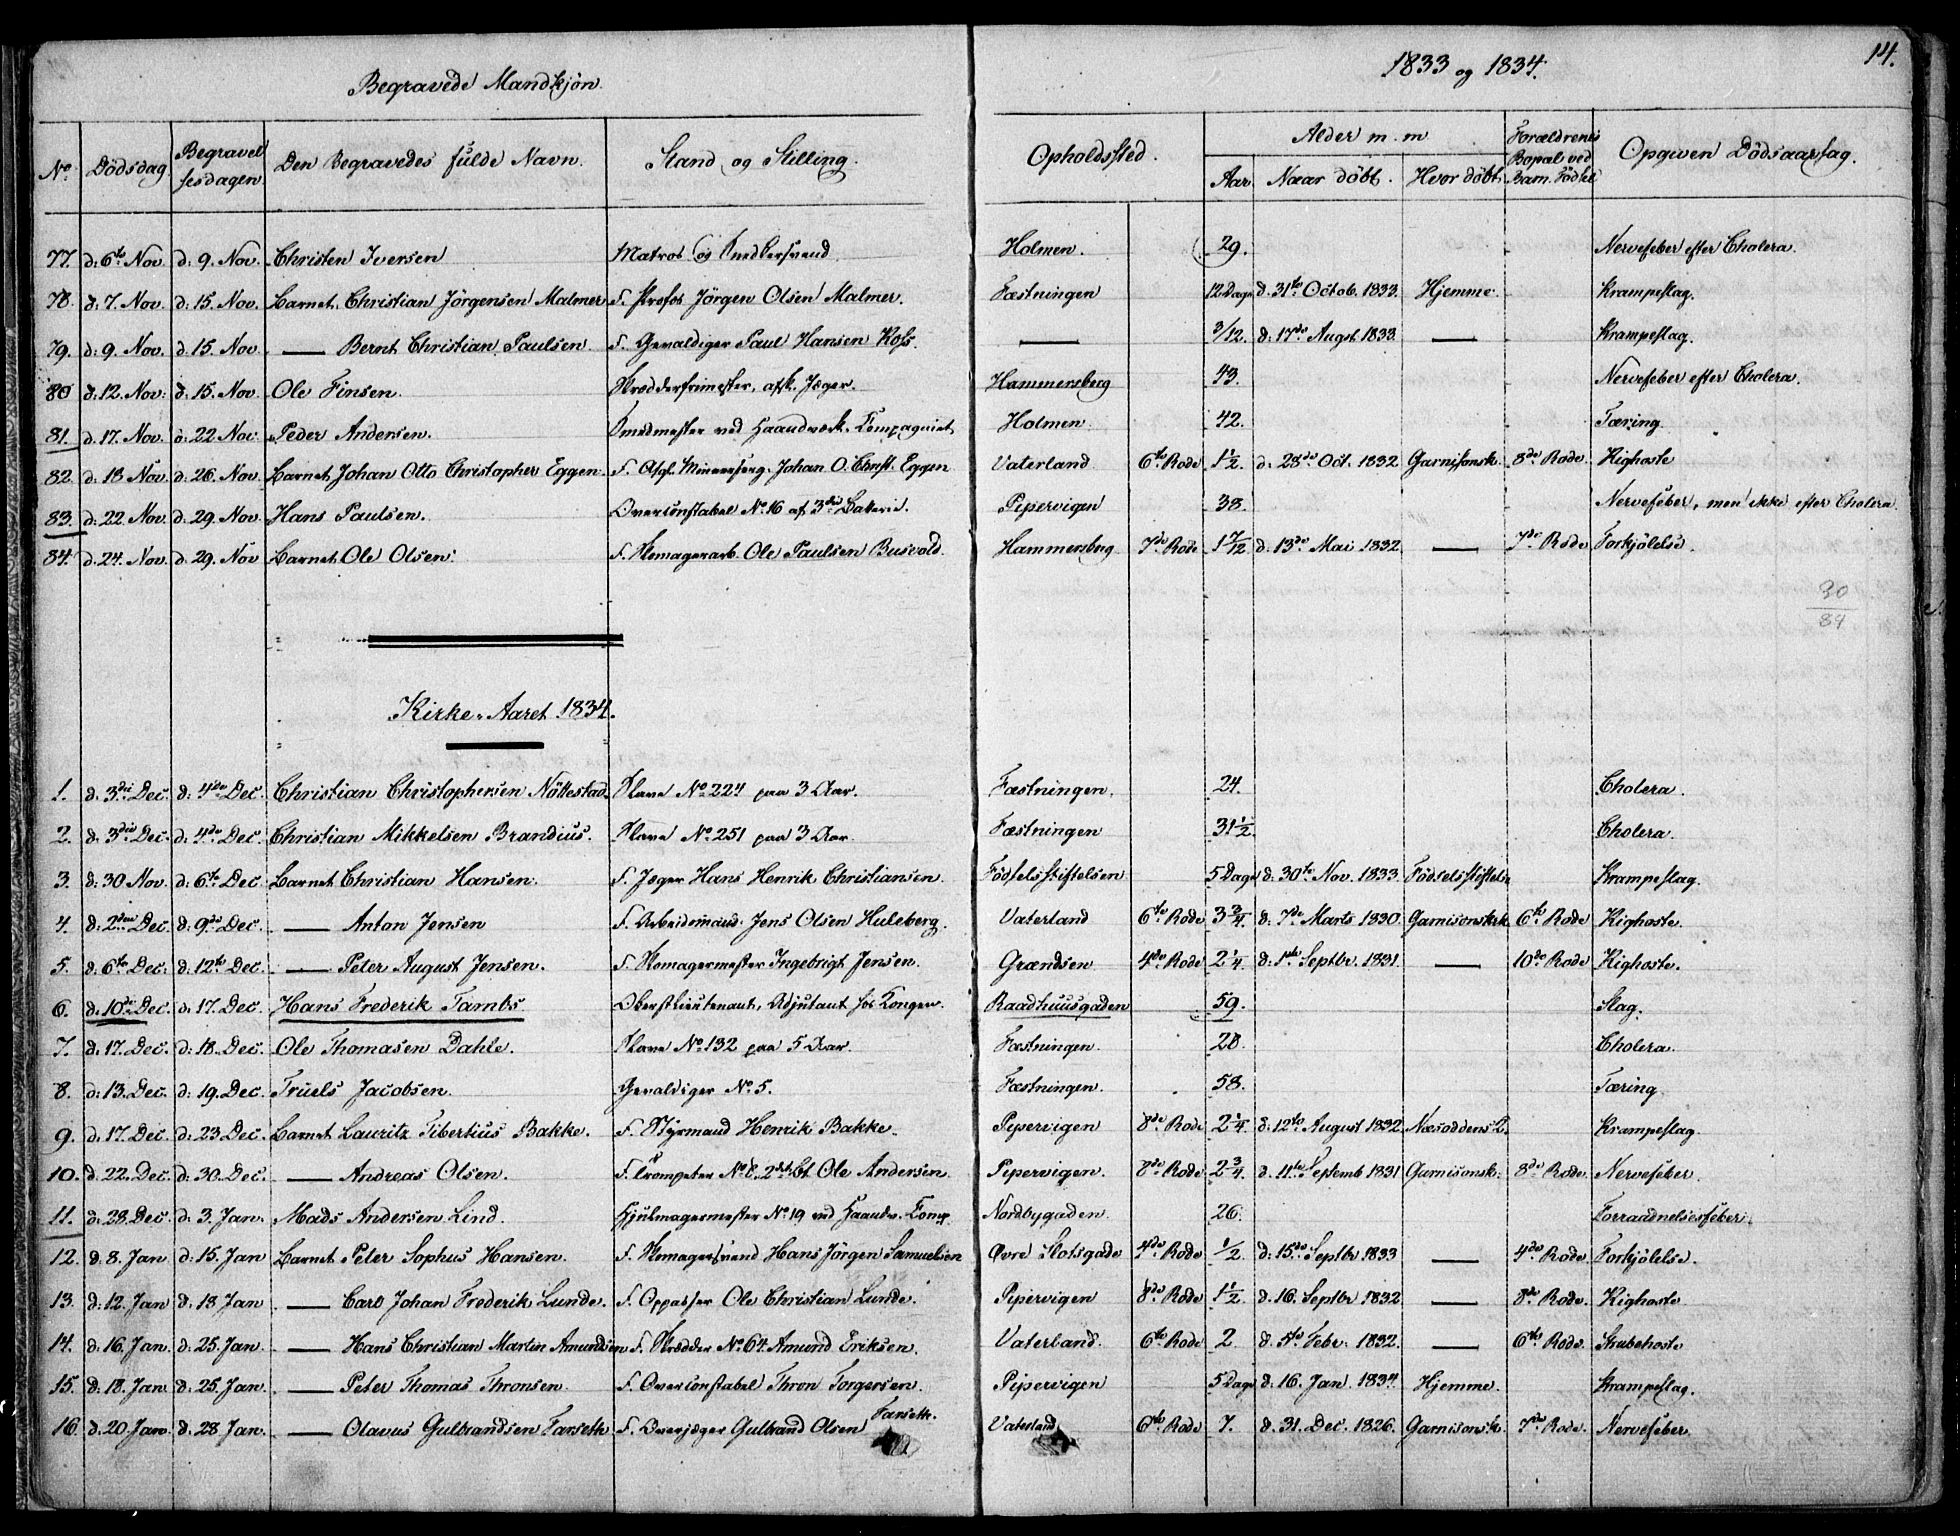 Begravede Mandkjøn.
1833 og 1834.
14.
No. Dödsdag Begravelsesdagen Den Begravedes fulde Navn. Stand og Stilling. Opholdssted. Alder m. m Aar Naar döbt. Hvor döbt Forældrenes Bopæl ved Barn. Födsel Opgiven Dödsaarsag.
77. d: 6te Nov. d: 9. Nov. Christen Iversen Matros og Snedkersvend. Holmen. 29. Nervefeber efter Cholera.
78. d: 7. Nov. d: 15. Nov. Barnet. Christian Jörgensen Malmer F. Profos Jörgen Olsen Malmer. Fæstningen 12 Dage d. 31te Octob. 1833. Hjemme. Krampeslag.
79. d: 9. Nov. d: 15. Nov. —— Bernt Christian Paulsen. F. Gevaldiger Paul Hansen Kofs. —— 3/12. d: 17de Augst. 1833. —— Krampeslag.
80 d: 12. Nov. d: 15. Nov. Ole Finsen. Skrædderfrimester, afsk. Jæger. Hammersberg 43. Nervefeber efter Cholera.
81. d. 17. Nov. d. 22 Nov. Peder Andersen. Smedmester ved Haandværk. Compagniet Holmen 42. Tæring.
82. d: 18 Nov. d: 26. Nov. Barnet Johan Otto Christopher Eggen. F. Afgl. Minerserg. Johan O. Christ. Eggen Vaterland 6te Rode 1½. d. 28de Oct. 1832. Garnisonsk. 8de Rode. Kighoste
83. d: 22 Nov. d: 29. Nov. Hans Paulsen. Overconstabel No. 16 af 3die Batterie. Pipervigen 38. Nervefeber, men ikke efter Cholera.
84. d. 24. Nov. d: 29. Nov Barnet Ole Olsen. F. Skomagerarb. Ole Paulsen Busvold. Hammersberg 7de Rode 1 7/12 d. 13de Mai 1832. —— 7de Rode Forkjölelse.
30
84
Kirke-Aaret 1834.
1. d. 3die Dec. d: 4de Dec. Christian Christophersen Nöttestad. Slave No. 224 paa 3 Aar. Fæstningen. 24. Cholera.
2. d: 3die Dec. d: 4de Dec. Christian Mikkelsen Brandius. Slave No. 251 paa 3 Aar. Fæstningen 31½. Cholera.
3. d: 30 Nov. d: 6te Dec. Barnet Christian Hansen. F. Jæger Hans Henrik Christiansen. Födselsstiftelsen 5 Dage d. 30te Nov. 1833. Födselsstiftelse Krampeslag.
4. d: 2den Dec. d: 9de Dec. —— Anton Jensen F. Arbeidsmand Jens Olsen Huleberg. Vaterland 6te Rode 3¾. d: 7de Marts 1830. Garnisonskirk 6te Rode Kighoste.
5. d. 6te Dec. d. 12te Dec. —— Peter August Jensen. F. Skomagermester Ingebrigt Jensen. Grændsen 4de Rode 2¼. d: 1ste Septbr. 1831. —— 10de Rode Kighoste.
6. d. 10de Dec. d: 17. Dec. Hans Frederik Tambs Oberstlieutenant, Adjutant hos Kongen. Raadhuusgaden 59. Slag.
7. d: 17. Dec. d: 18. Dec. Ole Thomasen Dahle. Slave No. 132 paa 5 Aar. Fæstningen. 28. Cholera.
8. d: 13. Dec. d: 19. Dec. Truels Jacobsen. Gevaldiger No. 5. Fæstningen. 58. Tæring.
9. d: 17. Dec. d: 23 Dec. Barnet Lauritz Tibertius Bakke. F. Styrmand Henrik Bakke. Pipervigen 8de Rode 2¼. d: 12te August 1832. Næsoddens 2. Krampeslag.
10. d. 22. Dec. d: 30. Dec. —— Andreas Olsen. F. Trompeter No. 6. 2det Bt Ole Andersen Pipervigen. 8de Rode 2¾. d. 11te Septemb. 1831 Garnisonsk. 8de Rode. Nervefeber
11. d: 28. Dec. d: 3. Jan. Mads Andersen Lind. Hjulmagermester No. 19 ved Haandv. Comp. Nordbygaden. 26. Forraadnelsesfeber.
12. d. 8. Jan d: 15. Jan Barnet Peter Sophus Hansen. F. Skomagersvend Hans Jörgen Samuelsen Øvre Slotsgade 4de Rode ½. d: 15de Septbr 1833 —— 4de Rode Forkjölelse.
13. d: 12. Jan d: 18 Jan —— Carl Johan Frederik Lunde. F. Oppasser Ole Christian Lunde. Pipervigen 8de Rode 1½. d. 16. Septbr 1832 —— 8de Rode. Kighoste
14. d: 16. Jan. d: 25. Jan —— Hans Christian Martin Amundsen F. Skrædder No. 64 Amund Eriksen. Vaterland. 6te Rode 2. d. 5te Febr. 1832. —— 6te Rode. Strubehoste
15. d. 18. Jan. d: 25. Jan. —— Peter Thomas Thronsen. F. Overconstabel Thron Torgersen. Pipervigen 5 Dage d: 16. Jan. 1834. Hjemme. Krampeslag.
16. d. 20 Jan. d. 28 Jan. —— Olavus Gulbrandsen Farseth F. Overjæger Gulbrand Olsen Farseth. Vaterland 6te Rode 7. d. 31. Dec. 1826. Garnisonsk. 7de Rode. Nervefeber